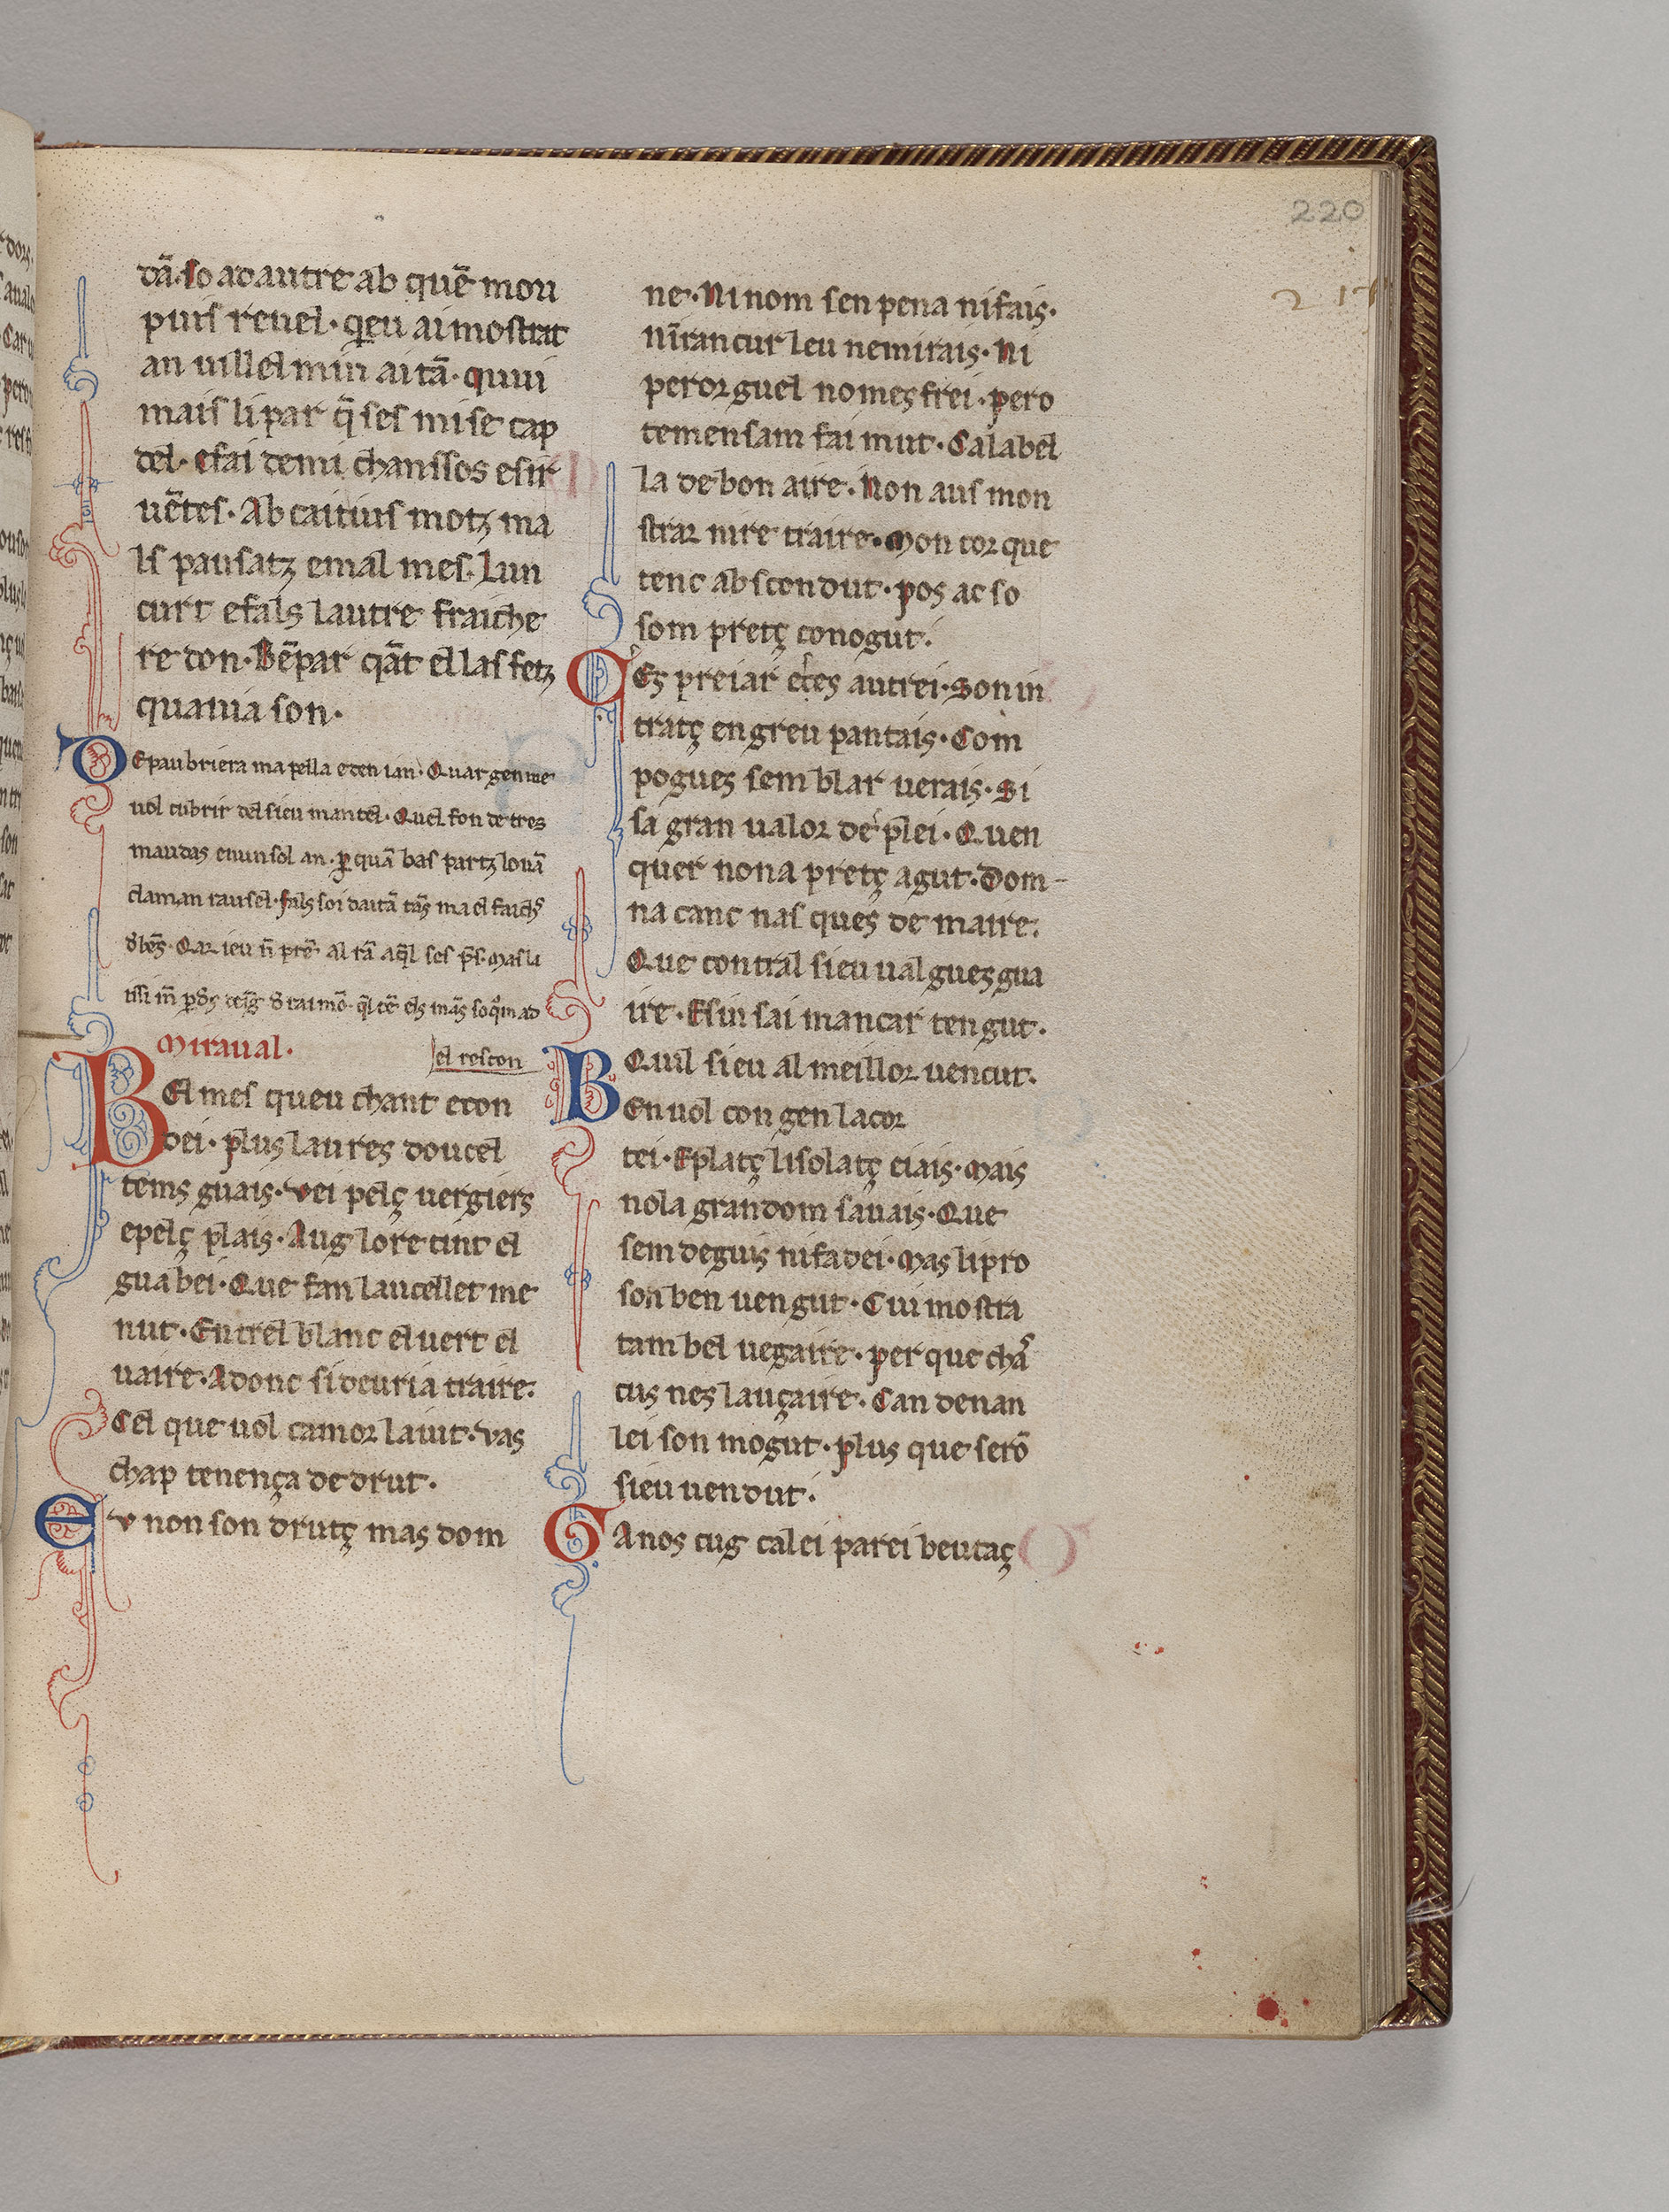 220
217
dā. so ad autre ab quē mou
puis reuel. qeu ai mostrat
an uillelmin aitā. quui
mais li par q̄ ses mise cap
del. Efai demi chanssos e sir
uētes. Ab caitius motz ma
ls pausatz e mal mes. Lun
curt e fals lautre fraiche
re don. Bēpar qāt el las fetz
quauia son.
DE paubriera ma pella eden ian. Quar gen me
uol cubrir del sieu mantel. Quel fon de tres
maudas en un sol an. ꝑ quā bas partz louā
claman rausel. fals soi daitā
Miraual.
el rescon
BEl mes queu chant econ
dei. plus laures doucel
tems guais. vei pelç uergiers
epelç plais. Aug lore tint el
guabei. Que fan laucellet me
nut. Entrel blanc el uert el
uaire. Adonc si deuria traire.
Cel que uol camor laiut. vas
chap tenença de drut.
Ev non son drutç mas dom
ne. Ni nom sen pena ni fais.
nīrancur leu nemirais. Ni
per orguel no mes frei. pero
temensam fai mut. Calabel
la de bon aire. Non aus mon
strar nire traire. Mon cor que
tenc abscondut. pos ac so
som pretç conogut.
Es preiar etes autrei. Son in
tratç en greu pantais. Com
pogues semblar uerais. Si
sa gran ualor deplei. Quen
quer non a pretç agut. Dom-
na canc nasques de maire.
Que contral sieu ualgues gua
ire. Esin sai mancar tengut.
Quil sieu al meillor uencut.
BEn uol con gen lacor
tei. Eplatç li solatç eiais. Mais
nola gran dom sauais. Que
sem deguis nifadei. Mas li pro
son ben uengut. Cui mostra
tam bel uegaire. per que chā
cus nes lauçaire. Can denan
lei son mogut. plus que serō
sieu uendut.
GAnos cug calei parei beutaç